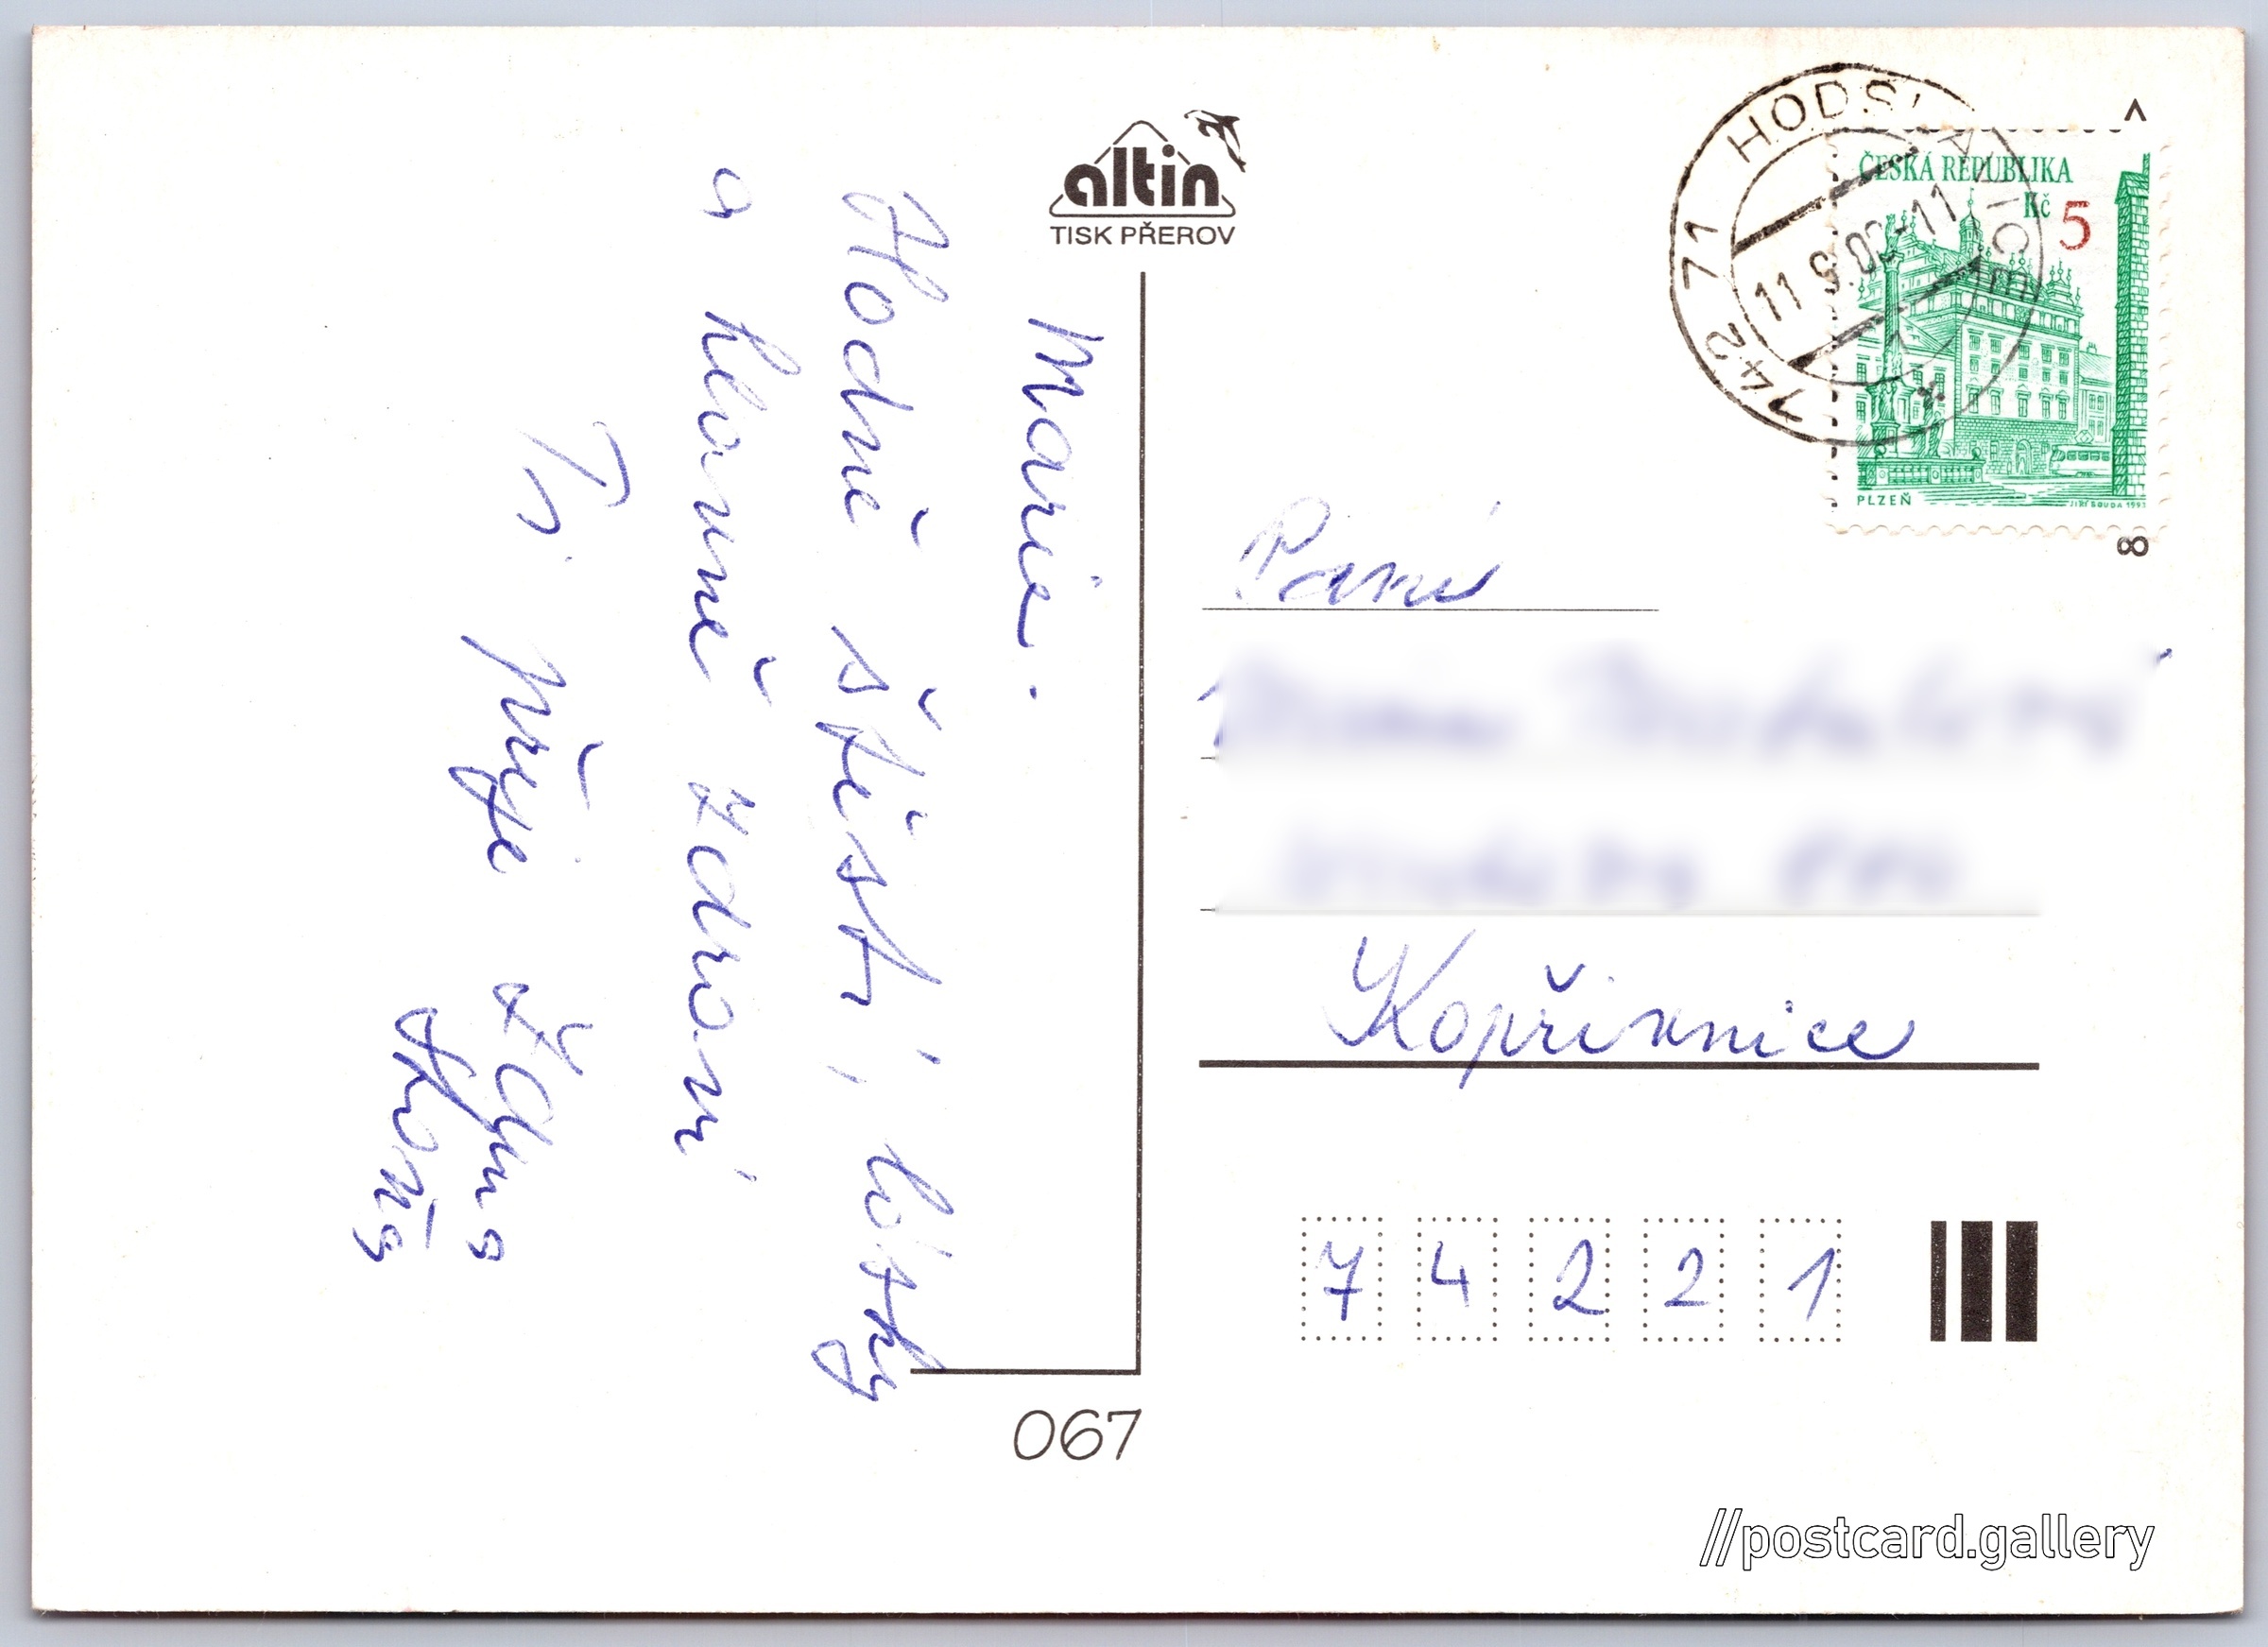 altin
TISK PŘEROV
Marie.
Hodně štěstí, lásky
a hlavně zdraví
Ti přeje
742 71 HODSLAVICE
11 9.
-11
ČESKÁ REPUBLIKA
Kč 5
PLZEŇ
JIŘÍ BOUDA 1993
8
Paní
Kopřivnice
7 4 2 2 1
067
//postcard.gallery